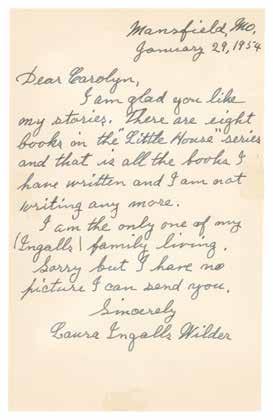 Mansfield, Mo.
January 29, 1954
Dear Carolyn,
I am glad you like
my stories. There are eight
books in the "Little House" series
and that is all the books I
have written and I am not
writing any more.
I am the only one of my
(Ingalls) family living.
Sorry but I have no
picture I can send you.
Sincerely
Laura Ingalls Wilder